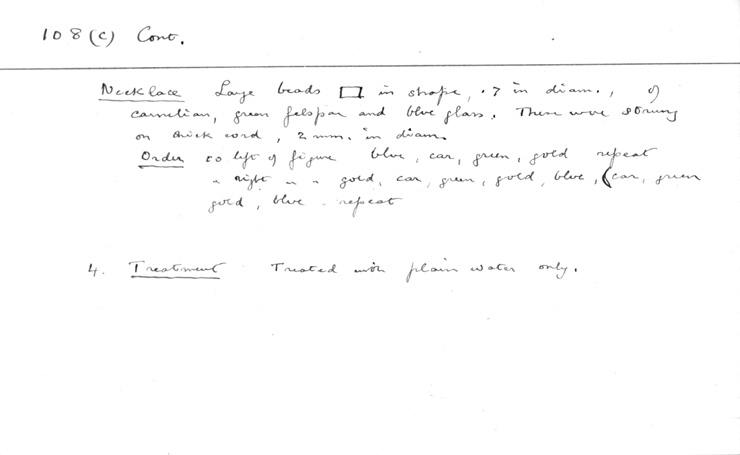 108 (c) Cont.
Necklace Large beads ▭ in shape, .7 in diam., of
carnelian, green felspar and blue glass. These were strung
on thick cord, 2 mm. in diam.
Order to left of figure blue, car, green, gold repeat
" right " " gold, car, green, gold, blue, (car, green
gold, blue - repeat
4. Treatment Treated with plain water only.